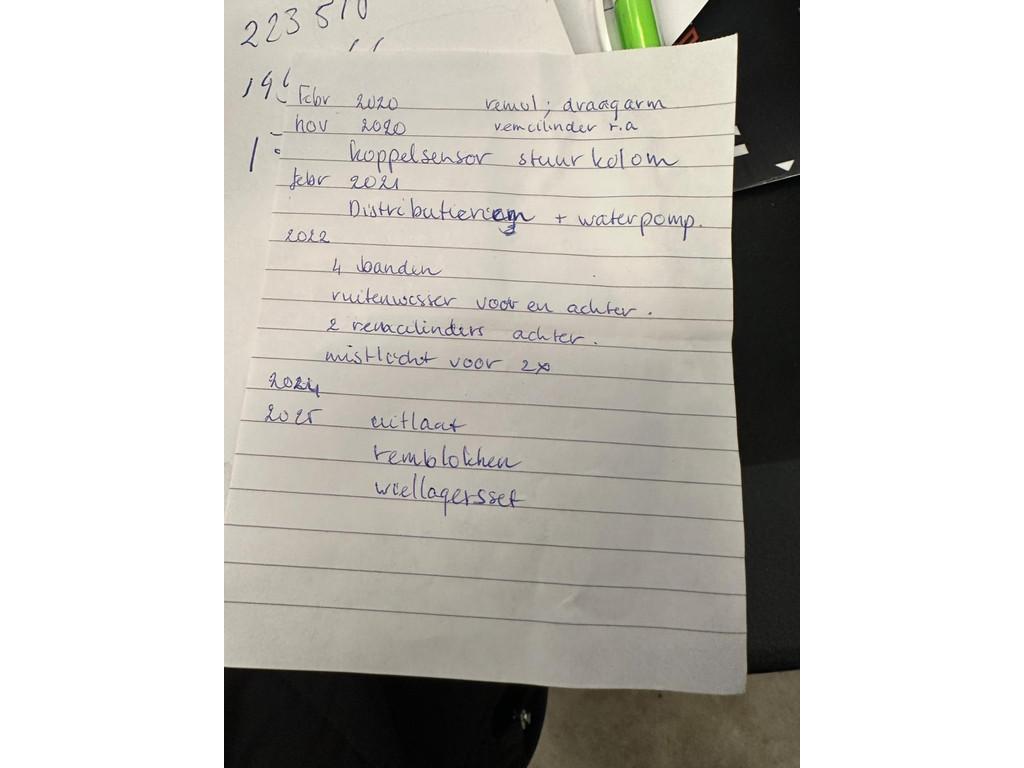 223 510
Febr 2020 remol; draagarm
nov 2020 remcilinder r.a
koppelsensor stuurkolom
febr 2021
Distributieriem + waterpomp.
2022
4 banden
ruitenwisser voor en achter.
2 remcilinders achter.
mistlicht voor 2x
2024
2025 uitlaat
remblokken
wiellagersset